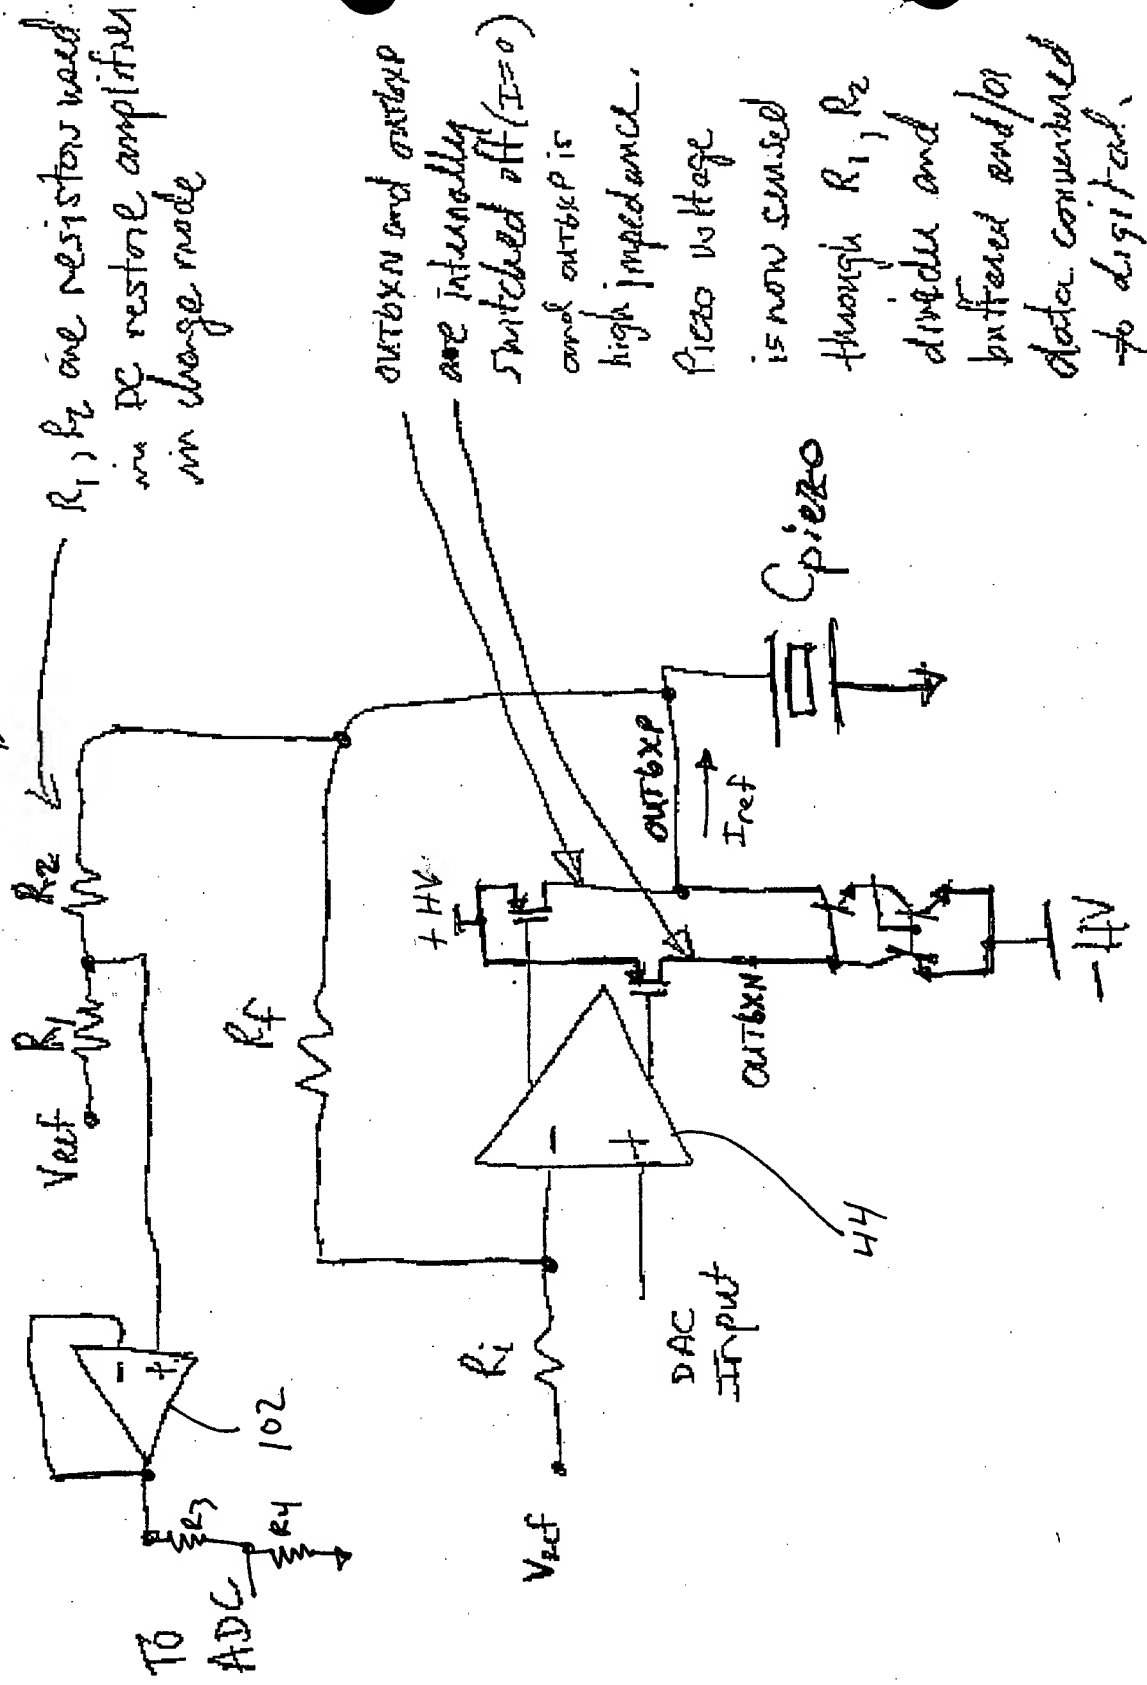 R1, R2 are resistors used
in DC restore amplifier
in charge mode
OUT6XN and OUT6XP
are internally
switched off (I=0)
and OUT6XP is
high impedance.
Piezo voltage
is now sensed
through R1, R2
divider and
buffered and/or
data converted
to digital.
Vref
R1
R2
102
R3
R4
To
ADC
Rf
+HV
OUT6XP
Iref
Cpiezo
OUT6XN
-HV
44
Ri
Vref
DAC
Input
-
+
-
+